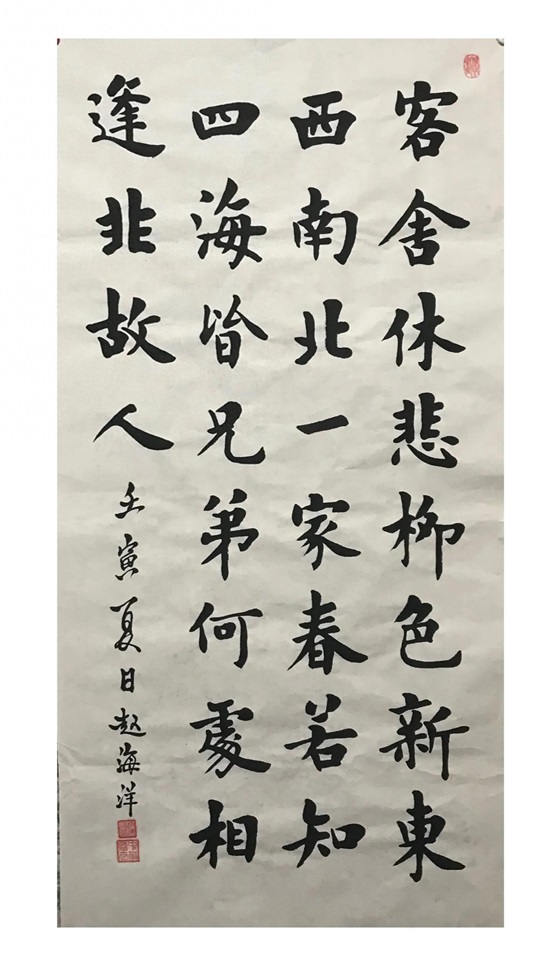 客舍休悲柳色新東
西南北一家春若知
四海皆兄弟何處相
逢非故人
壬寅夏日趙海洋